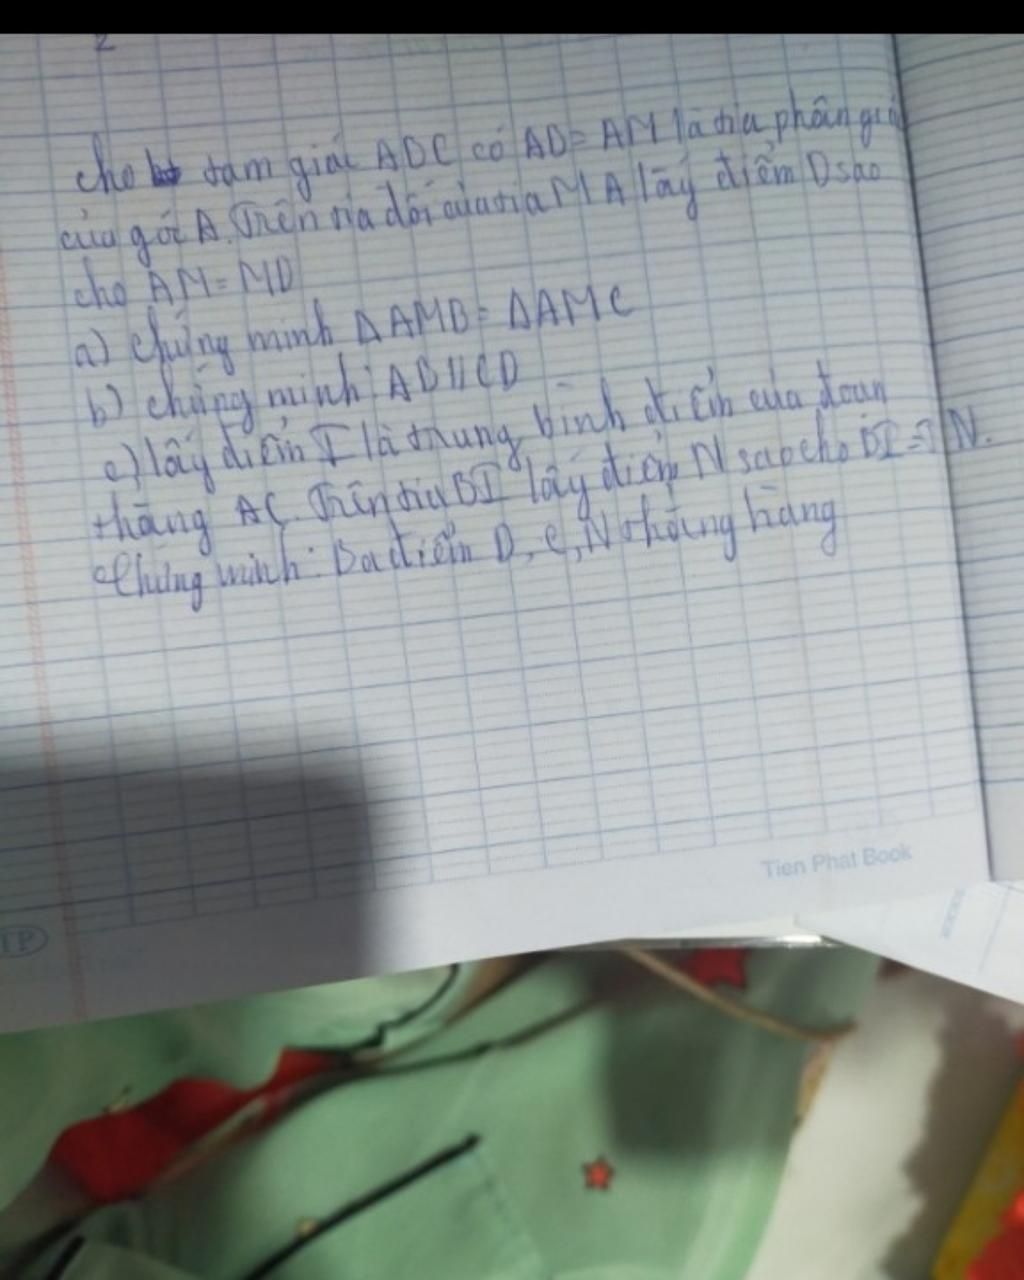 2
cho tam giác ABC có AB= AM là tia phân giá
của góc A. Trên tia đối của tia MA lấy điểm D sao
cho AM = MD
a) Chứng minh ΔAMB= ΔAMC
b) chứng minh: AB//CD
c) lấy điểm I là trung bình điểm của đoạn
thẳng AC. Trên tia BI lấy điểm N sao cho BI=IN.
Chứng minh: Ba điểm D, C, N thẳng hàng
Tien Phat Book
TP